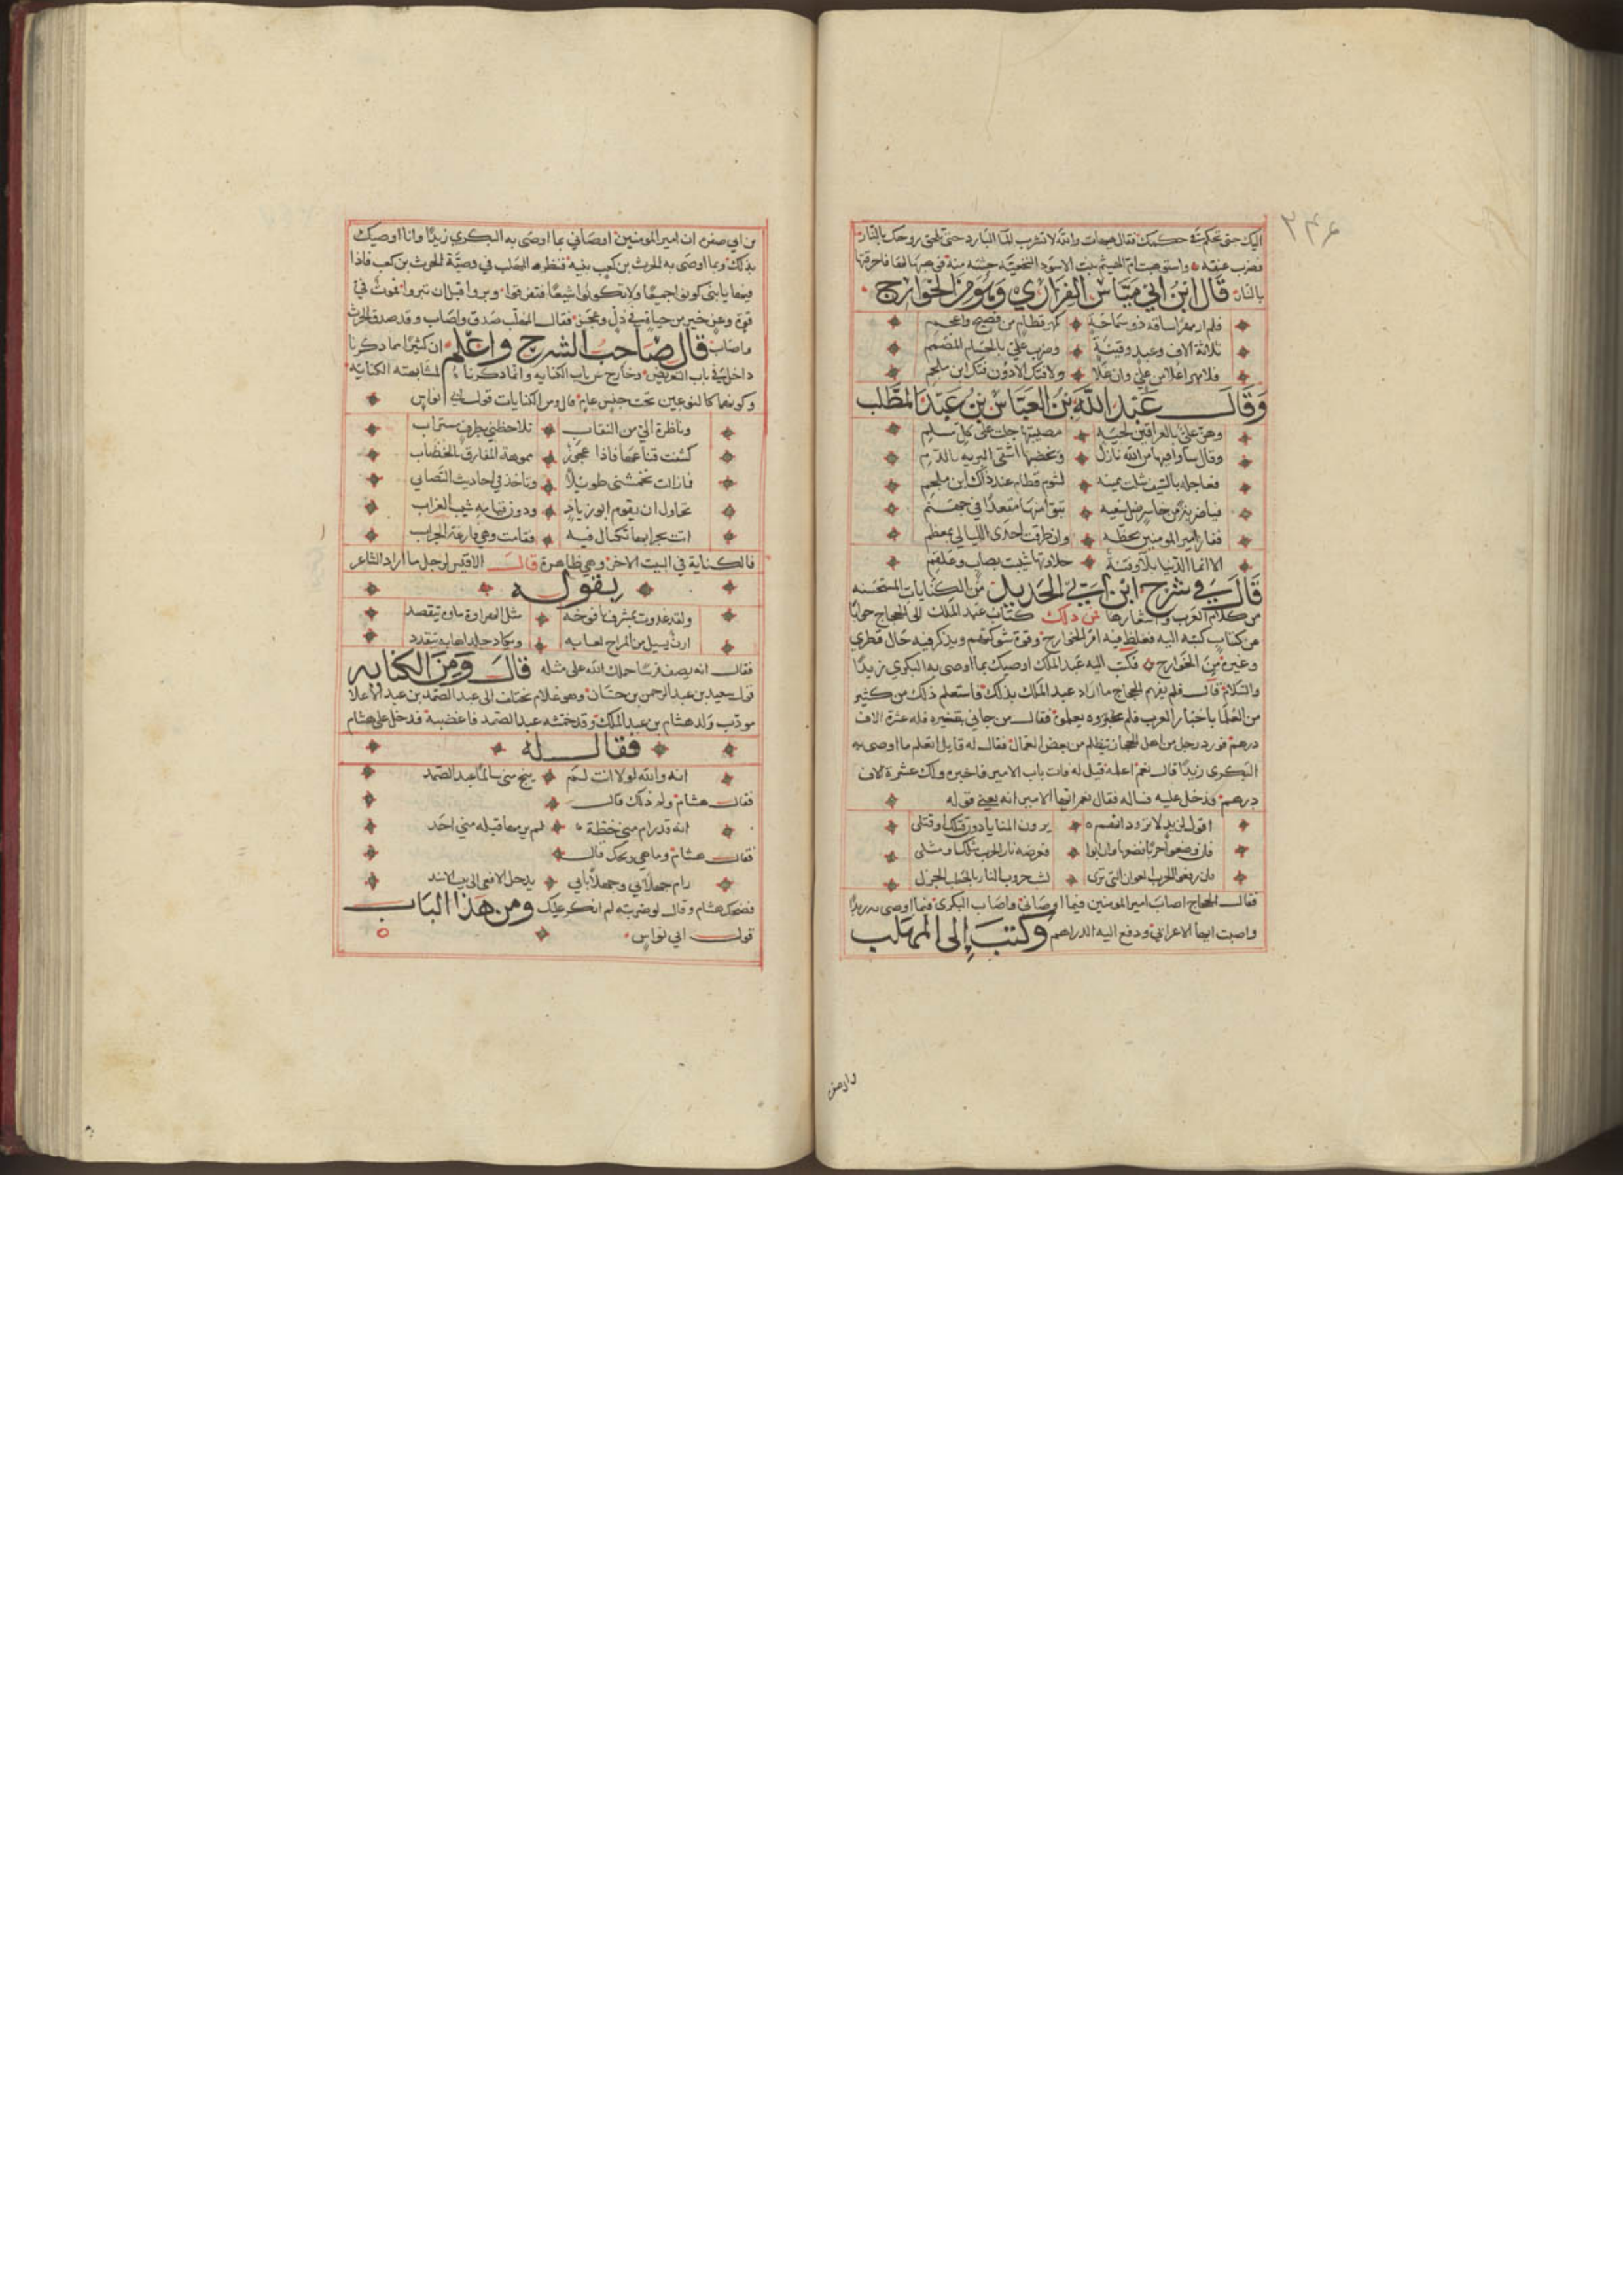 ٢٤٤
اليك حتى تحكم في حكمك فقال هيهات والله لا تشرب لذا البارد حتى تلحق روحك بالنار
فضرب عنقه واستوهبت ام الهيثم بنت الاسود النخعية جثته منه فوهبها لها فاحرقتها
بالنار قال ابن ابي مياس الفزاري وهو من الخوارج
فلم ار مهرا ساقه ذو سماحة كمهر قطام من فصيح واعجم
ثلاثة الاف وعبد وقينة وضرب علي بالحسام المصمم
فلا مهر اغلا من علي وان غلا ولا فتك الا دون فتك ابن ملجم
وقال عبد الله بن العباس بن عبد المطلب
وهز علي بالعراقين لحية مصيبتها جلت على كل مسلم
وقال سيأتيها من الله نازل ويخضبها اشقى البرية بالدم
فعاجله بالسيف شلت يمينه لشوم قطام عند ذاك ابن ملجم
فيا ضربة من خاسر ضل سعيه تبوأ منها مقعدا في جهنم
ففاز امير المومنين بحظه وان طرقت احدى الليالي بمعظم
الا انما الدنيا بلاء وفتنة حلاوتها شيبت بصاب وعلقم
قال في شرح ابن ابي الحديد من الكنايات المستحسنه
من كلام العرب واشعارها فمن ذلك كتاب عبد الملك الى الحجاج جوابا
عن كتاب كتبه اليه فغلظ فيه امر الخوارج وقوة شوكتهم ويذكر فيه حال قطري
وغيره من الخوارج فكتب اليه عبد الملك اوصيك بما اوصى به البكري زيدا
والسلام قال فلم يفهم الحجاج ما اراد عبد الملك بذلك فاستعلم ذلك من كثير
من العلما باخبار العرب فلم يخبروه بعلمه فقال من جاني بتفسيره فله عشرة الاف
درهم فورد رجل من اهل الحجاز يتظلم من بعض العمال فقال له قايل اتعلم ما اوصى به
البكري زيدا قال نعم اعلمه قيل له فات باب الامير فاخبره ولك عشرة الاف
درهم فدخل عليه فساله فقال نعم ايها الامير انه يعني قوله
اقول لزيد لا تزود انهم يرون المنايا دون قتلك او قتلى
فان وضعوا حربا فضعها وان ابوا فعرضه نار الحرب مثلك او مثلى
وان رفعوا الحرب العوان التي ترى فشب وقود النار بالحطب الجزل
فقال الحجاج اصاب امير المومنين فيما اوصاني واصاب البكرى فيما اوصى به زيدا
واصبت ايها الاعرابي ودفع اليه الدراهم وكتب الى المهلب
بن ابي صفره ان امير المومنين اوصاني بما اوصى به البكري زيدا وانا اوصيك
بذلك وبما اوصى به الحرث بن كعب بنيه فنظر المهلب في وصية الحرث بن كعب فاذا
فيها يا بنى كونوا جميعا ولا تكونوا شيعا فتفرقوا وبروا قبل ان تبروا فموت في
قوة وعز خير من حياة في ذل وعجز فقال المهلب صدق واصاب وقد صدق الحرث
واصاب قال صاحب الشرح واعلم ان كثيرا مما ذكرنا
داخل في باب التعريض وخارج عن باب الكنايه وانما ذكرناه لمشابهته الكناية
وكونهما كالنوعين تحت جنس عام قال ومن الكنايات قول ابي نواس
وناظرة الي من النقاب تلاحظني بطرف مستراب
كشفت قناعها فاذا عجوز مموهة المفارق بالخضاب
فما زالت تخمشنى طويلا وتاخذ في احاديث التصابي
تحاول ان يقوم ابو زياد ودون قيامه شيب الغراب
اتت بجرابها تكتال فيه فقامت وهي فارغة الجراب
فالكناية في البيت الاخر وهي ظاهرة قال الاقيشر لرجل ما اراد الشاعر
بقوله
ولقد غدوت بمشرف يافوخه
ارن يسيل من المراح لعابه
فقال انه يصف فرسا حملك الله على مثله قال ومن الكنايه
قول سعيد بن عبد الرحمن بن حسان وهو غلام يختلف الى عبد الصمد بن عبد الاعلا
مودب ولد هشام بن عبد الملك وقد خمشه عبد الصمد فاغضبه فدخل على هشام
فقال له
انه والله لولا انت لم ينج مني سالما عبد الصمد
فقال هشام ولم ذلك قال
انه قد رام مني خطة لم يرمها قبله مني احد
فقال هشام وما هي ويحك قال
رام جهلا بي وجهلا بابي يدخل الافعى الى بيت الاسد
فضحك هشام وقال لو ضربته لم انكر عليك ومن هذا الباب
قول ابي نواس